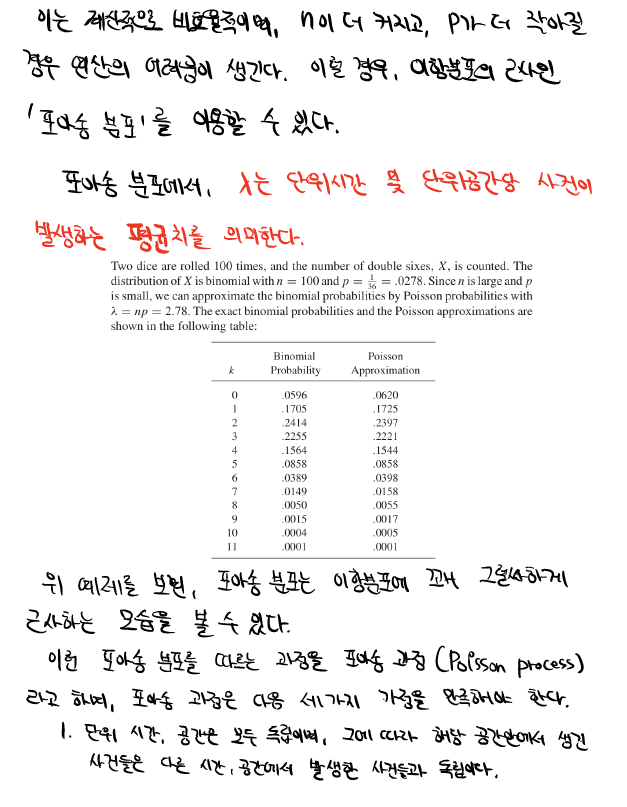 이는 계산적으로 비효율적이며, n이 더 커지고, p가 더 작아질
경우 연산의 어려움이 생긴다. 이럴 경우, 이항분포의 근사인
'포아송 분포'를 이용할 수 있다.
포아송 분포에서, λ는 단위시간 및 단위공간당 사건이
발생하는 평균치를 의미한다.
Two dice are rolled 100 times, and the number of double sixes, X, is counted. The
distribution of X is binomial with n = 100 and p = 1/36 = .0278. Since n is large and p
is small, we can approximate the binomial probabilities by Poisson probabilities with
λ = np = 2.78. The exact binomial probabilities and the Poisson approximations are
shown in the following table:
Binomial Poisson
k Probability Approximation
0 .0596 .0620
1 .1705 .1725
2 .2414 .2397
3 .2255 .2221
4 .1564 .1544
5 .0858 .0858
6 .0389 .0398
7 .0149 .0158
8 .0050 .0055
9 .0015 .0017
10 .0004 .0005
11 .0001 .0001
위 예제를 보면, 포아송 분포는 이항분포에 꽤 그럴싸하게
근사하는 모습을 볼 수 있다.
이런 포아송 분포를 따르는 과정을 포아송 과정 (Poisson process)
라고 하며, 포아송 과정은 다음 세가지 가정을 만족해야 한다.
1. 단위 시간, 공간은 모두 독립이며, 그에 따라 해당 공간안에서 생긴
사건들은 다른 시간, 공간에서 발생한 사건들과 독립이다.